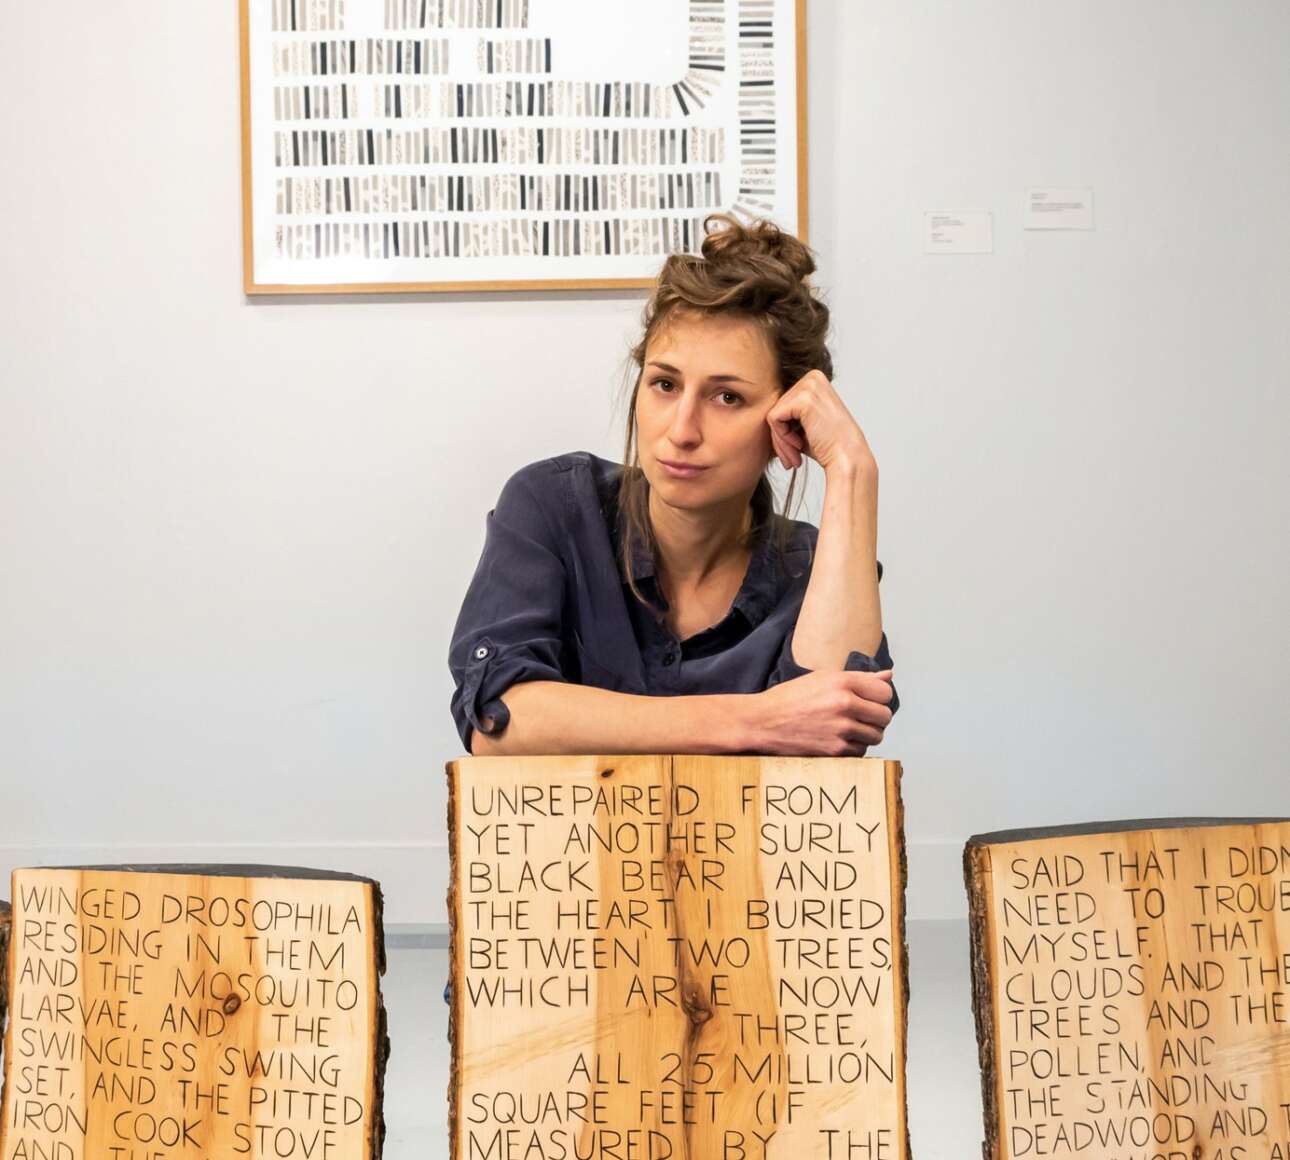 WINGED DROSOPHILA
RESIDING IN THEM
AND THE MOSQUITO
LARVAE, AND THE
SWINGLESS SWING
SET, AND THE PITTED
IRON COOK STOVE
AND THE
UNREPAIRED FROM
YET ANOTHER SURLY
BLACK BEAR AND
THE HEART I BURIED
BETWEEN TWO TREES,
WHICH ARE NOW
THREE,
ALL 25 MILLION
SQUARE FEET (IF
MEASURED BY THE
SAID THAT I
NEED TO
MYSELF. THAT
CLOUDS AND THE
TREES AND THE
POLLEN, AND
THE STANDING
DEADWOOD AND